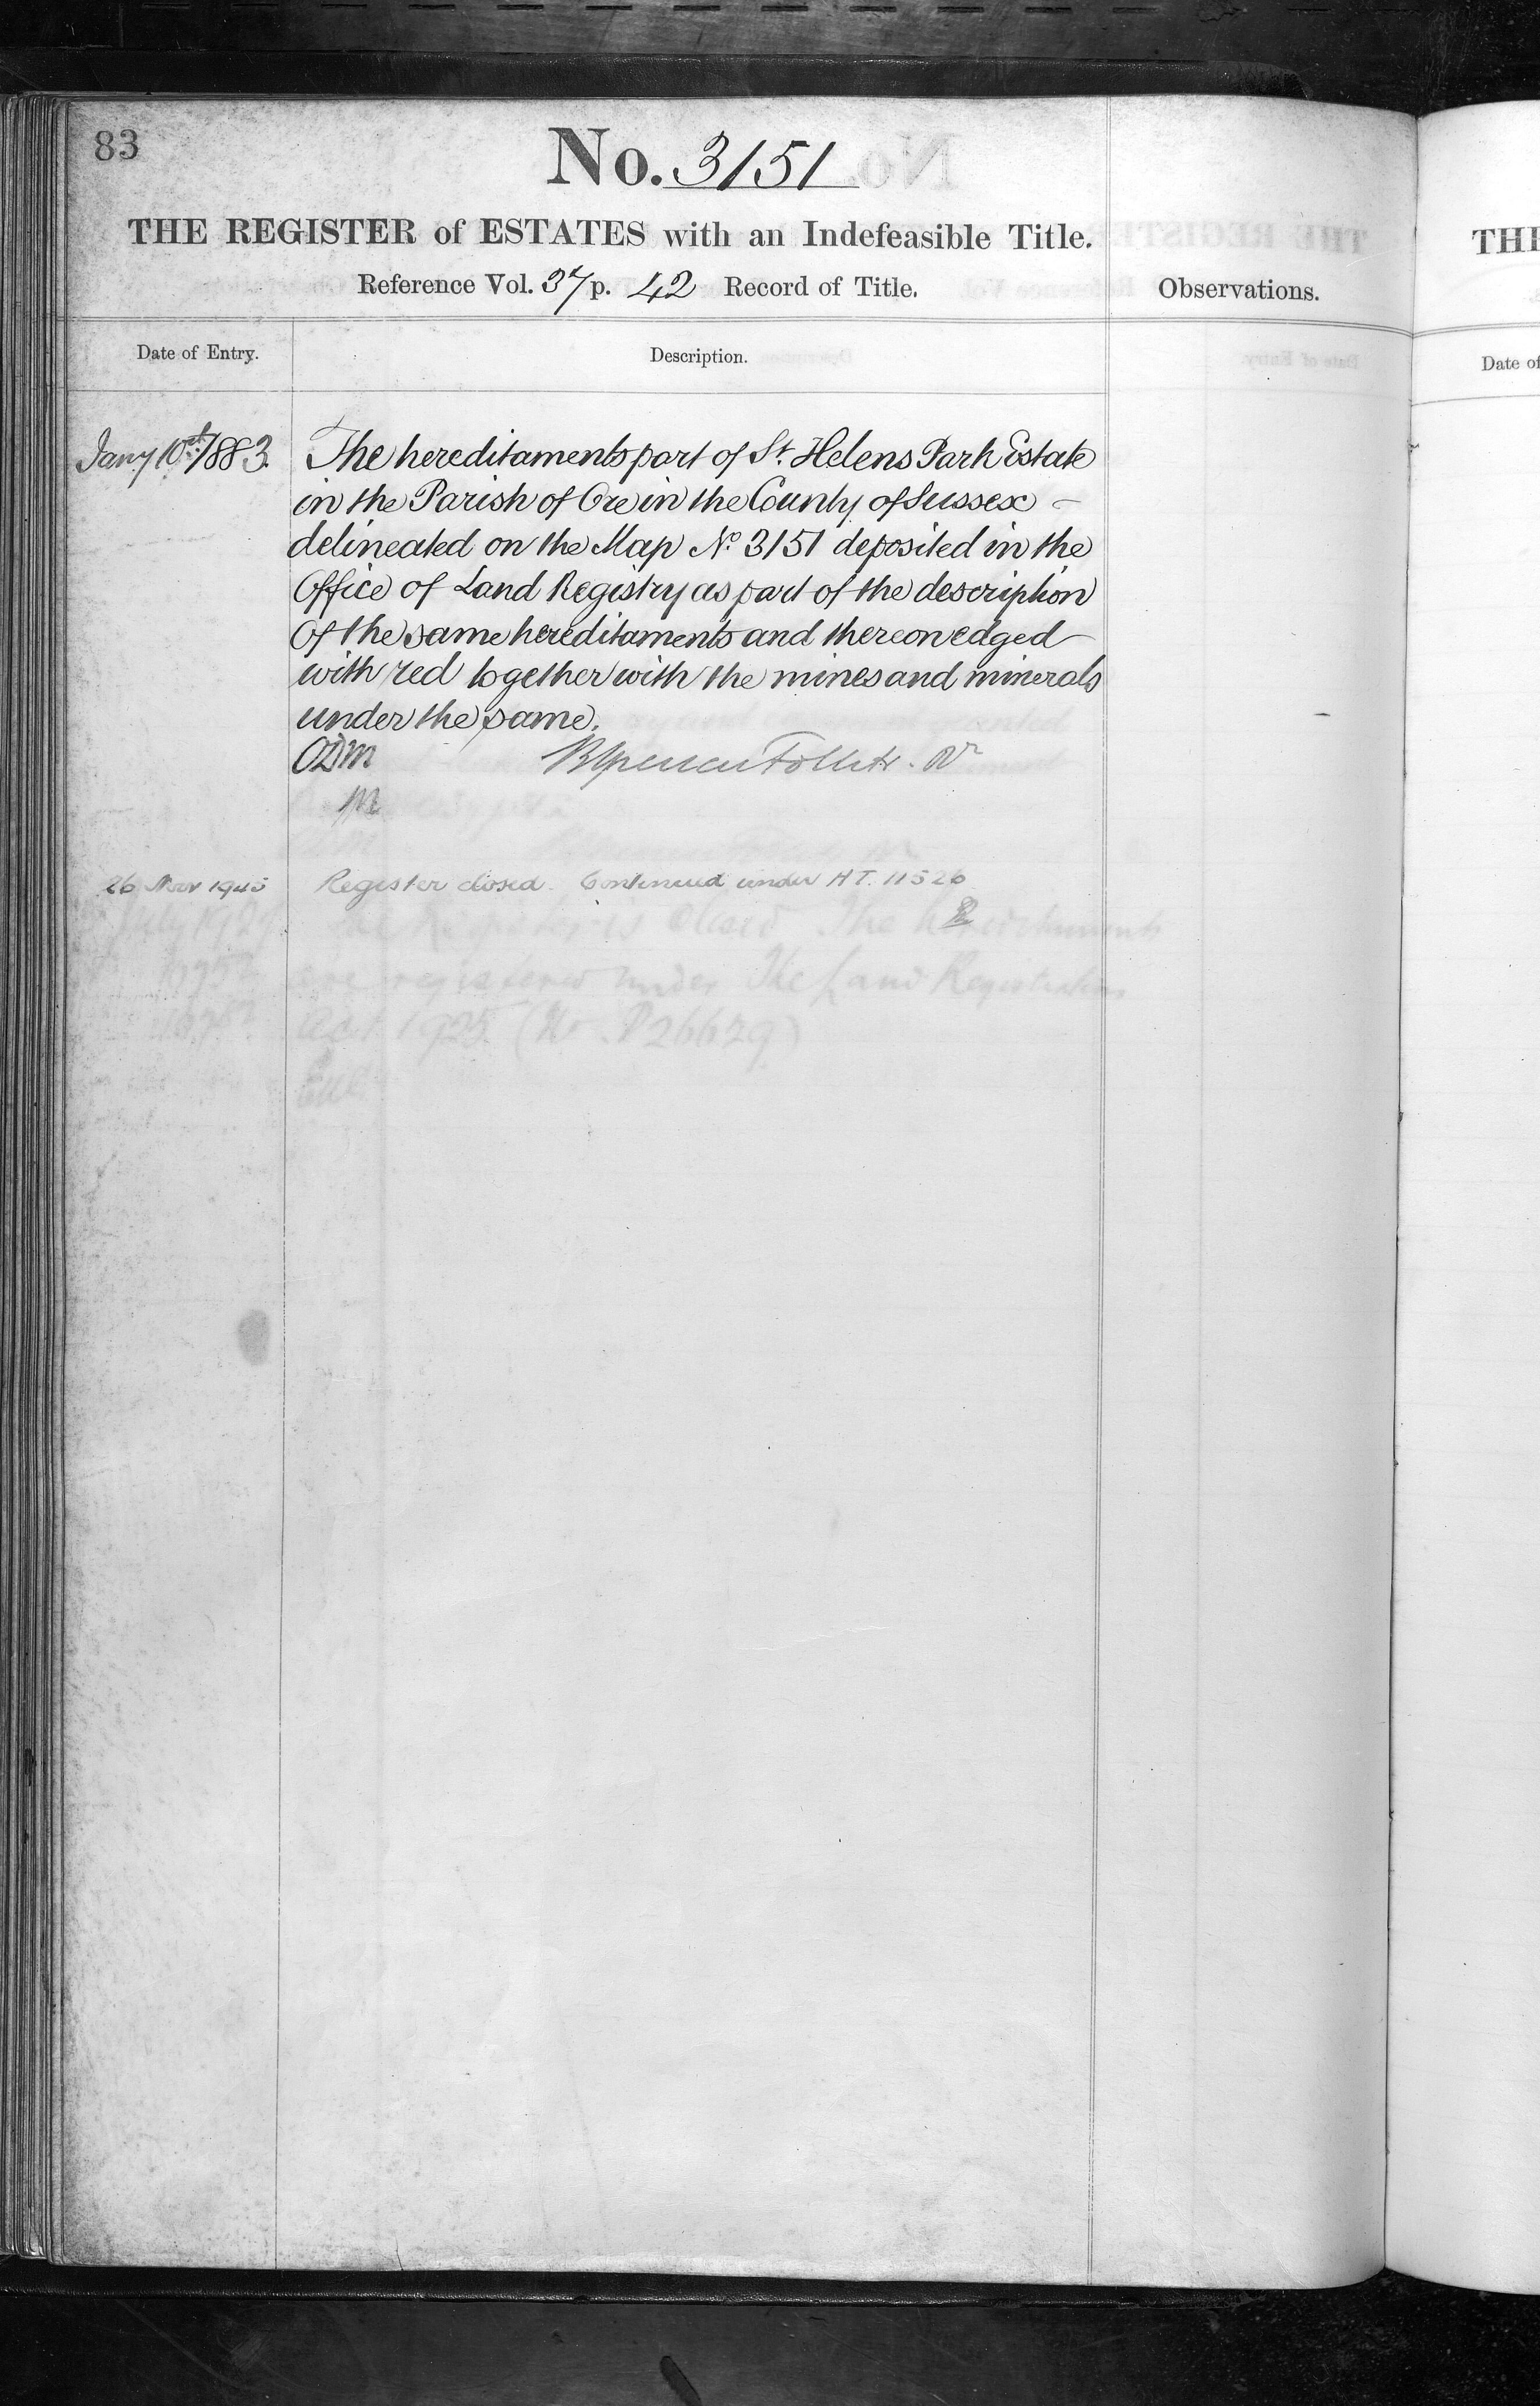 83
No. 3151
THE REGISTER of ESTATES with an Indefeasible Title.
Reference Vol. 37 p. 42 Record of Title.
Observations.
Date of Entry.
Description.
Jany 10th 1883.
The hereditaments part of St. Helens Park Estate
in the Parish of Ore in the County of Sussex –
delineated on the Map No. 3151 deposited in the
Office of Land Registry as part of the description
of the same hereditaments and thereon edged
with red together with the mines and minerals
under the same.
26 Nov 1945 Register closed. Continued under HT. 11526
The
are registered under The Land Registration
Act 1925
THE
Date of